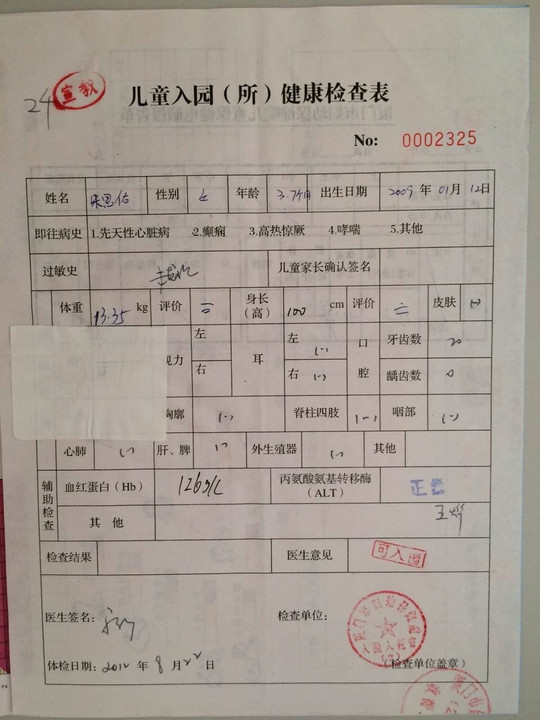 24
宣教
儿童入园（所）健康检查表
No: 0002325
姓名 性别 女 年龄 3.7个月 出生日期 2009 年 01 月 12 日
即往病史 1.先天性心脏病 2.癫痫 3.高热惊厥 4.哮喘 5.其他
过敏史 儿童家长确认签名
体重 13.35 kg 评价 身长（高） 100 cm 评价 皮肤 (-)
视力 左 耳 左 (-) 口腔 牙齿数 20
右 右 (-) 龋齿数 0
胸廓 (-) 脊柱四肢 (-) 咽部 (-)
心肺 (-) 肝、脾 (-) 外生殖器 (-) 其他
辅助检查 血红蛋白（Hb） 126g/L 丙氨酸氨基转移酶（ALT） 正常
其 他
检查结果 医生意见 可入园
医生签名： 检查单位：
体检日期: 2012 年 8 月 22 日 (检查单位盖章)